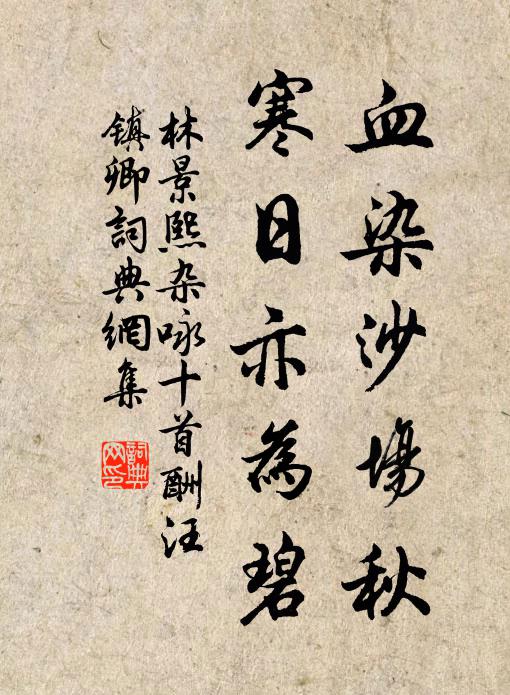 血染沙場秋
寒日亦為碧
林景熙杂咏十首酬汪
鎮卿詞典網集
詞典
网印